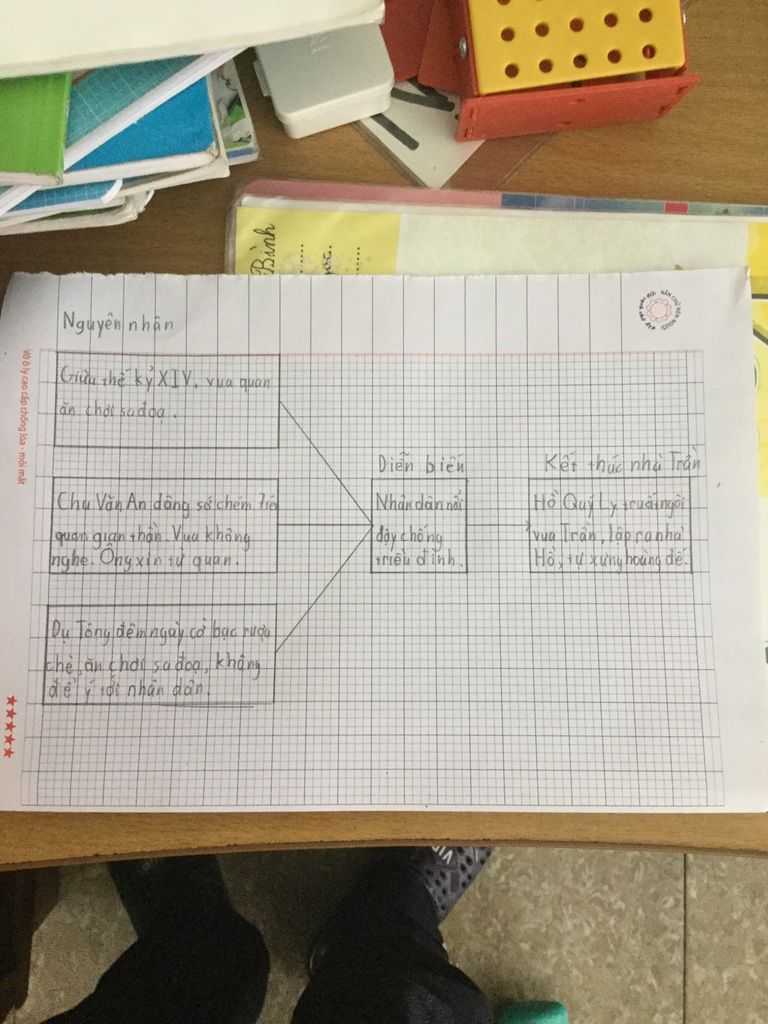 Bình
Nguyên nhân
Giữa thế kỷ XIV, vua quan
ăn chơi sa đoạ.
Chu Văn An dâng sớ chém
quan gian thần. Vua không
nghe. Ông xin từ quan.
Dụ Tông đêm ngày cờ bạc rượu
chè, ăn chơi sa đoạ, không
để ý tới nhân dân.
Diễn biến
Nhân dân nổi
dậy chống
triều đình.
Kết thúc nhà Trần
Hồ Quý Ly truất ngôi
vua Trần, lập ra nhà
Hồ, tự xưng hoàng đế.
Vở ô ly cao cấp chống lóa - mỏi mắt
NÂN CHỮ RÈN NGƯỜI